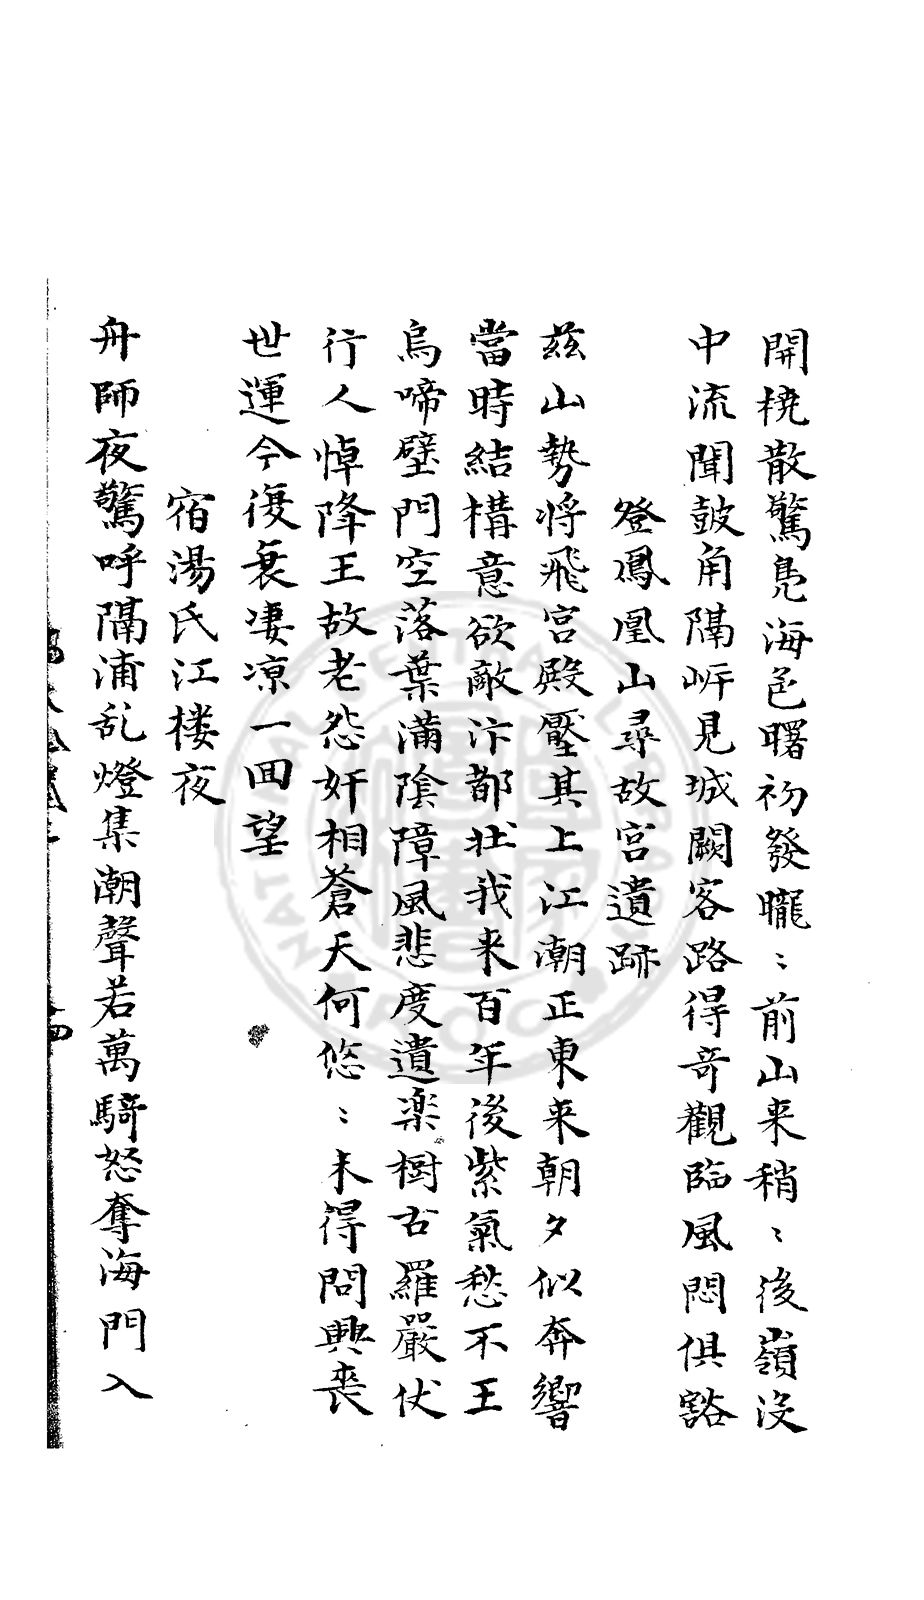 開橈散驚鳧海色曙初發曨〻前山来稍〻後嶺没
中流聞鼓角隔岸見城闕客路得奇觀臨風悶俱豁
登鳳凰山尋故宫遺跡
兹山勢将飛宫殿壓其上江潮正東来朝夕似奔響
當時結構意欲敵汴都壮我来百年後紫氣愁不王
烏啼壁門空落葉滿陰障風悲度遺楽樹古羅嚴伏
行人悼降王故老怨奸相蒼天何悠〻未得問興喪
世運今復衰凄凉一回望
宿湯氏江楼夜
舟師夜驚呼隔浦乱燈集潮聲若萬騎怒奪海門入
NATIONAL CENTRAL LIBRARY